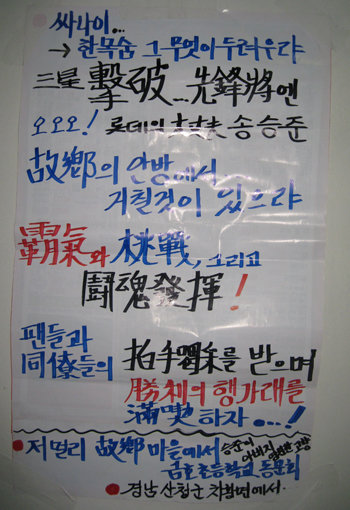 싸나이...
→ 한목숨 그 무엇이 두려우랴
三星 擊破... 先鋒將엔
오오오! 롯데의 송승준
故鄕의 안방에서
거칠것이 있으랴
覇氣와 挑戰, 그리고
鬪魂發揮!
팬들과
同僚들의 拍手喝采를 받으며
勝利의 행가래를
滿喫하자...!
저멀리 故鄕 마을에서 승준이 아버지 고향
금호초등학교 동문회
경남 산청군 차황면에서.